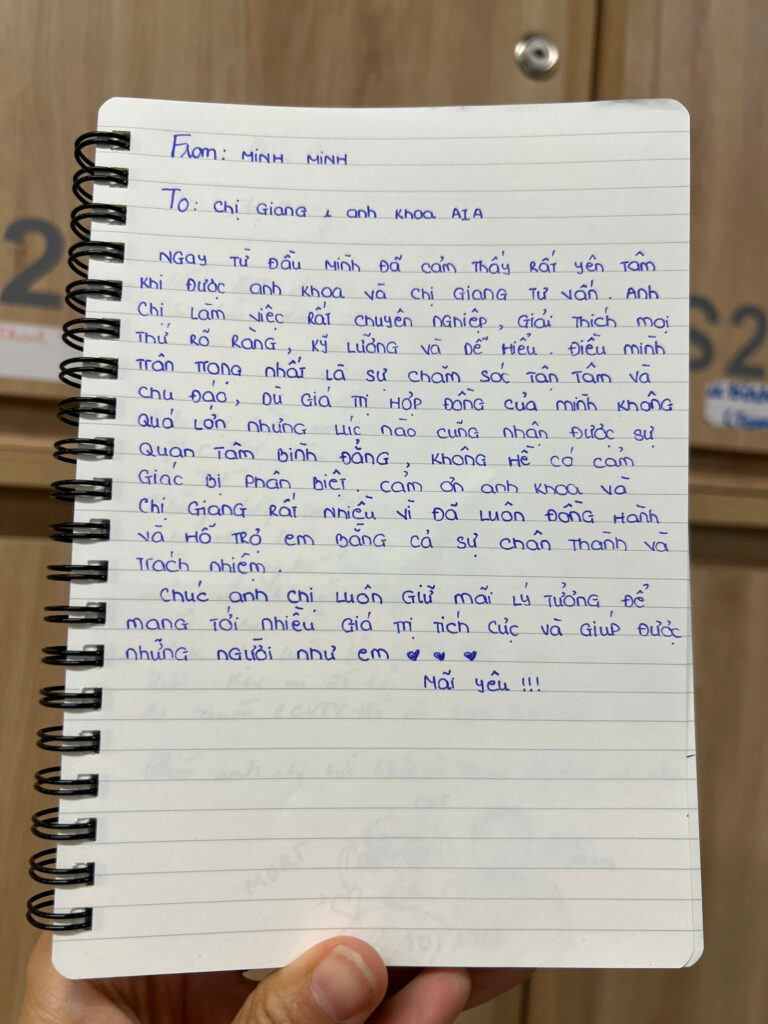 From: MINH MINH
To: Chị Giang & anh Khoa AIA
Ngay từ đầu mình đã cảm thấy rất yên tâm
khi được anh Khoa và chị Giang tư vấn. Anh
chị làm việc rất chuyên nghiệp, giải thích mọi
thứ rõ ràng, kỹ lưỡng và dễ hiểu. Điều mình
trân trọng nhất là sự chăm sóc tận tâm và
chu đáo, dù giá trị hợp đồng của mình không
quá lớn nhưng lúc nào cũng nhận được sự
quan tâm bình đẳng, không hề có cảm
giác bị phân biệt. Cảm ơn anh Khoa và
chị Giang rất nhiều vì đã luôn đồng hành
và hỗ trợ em bằng cả sự chân thành và
trách nhiệm.
Chúc anh chị luôn giữ mãi lý tưởng để
mang tới nhiều giá trị tích cực và giúp được
những người như em ♥ ♥ ♥
Mãi yêu !!!
2
S2